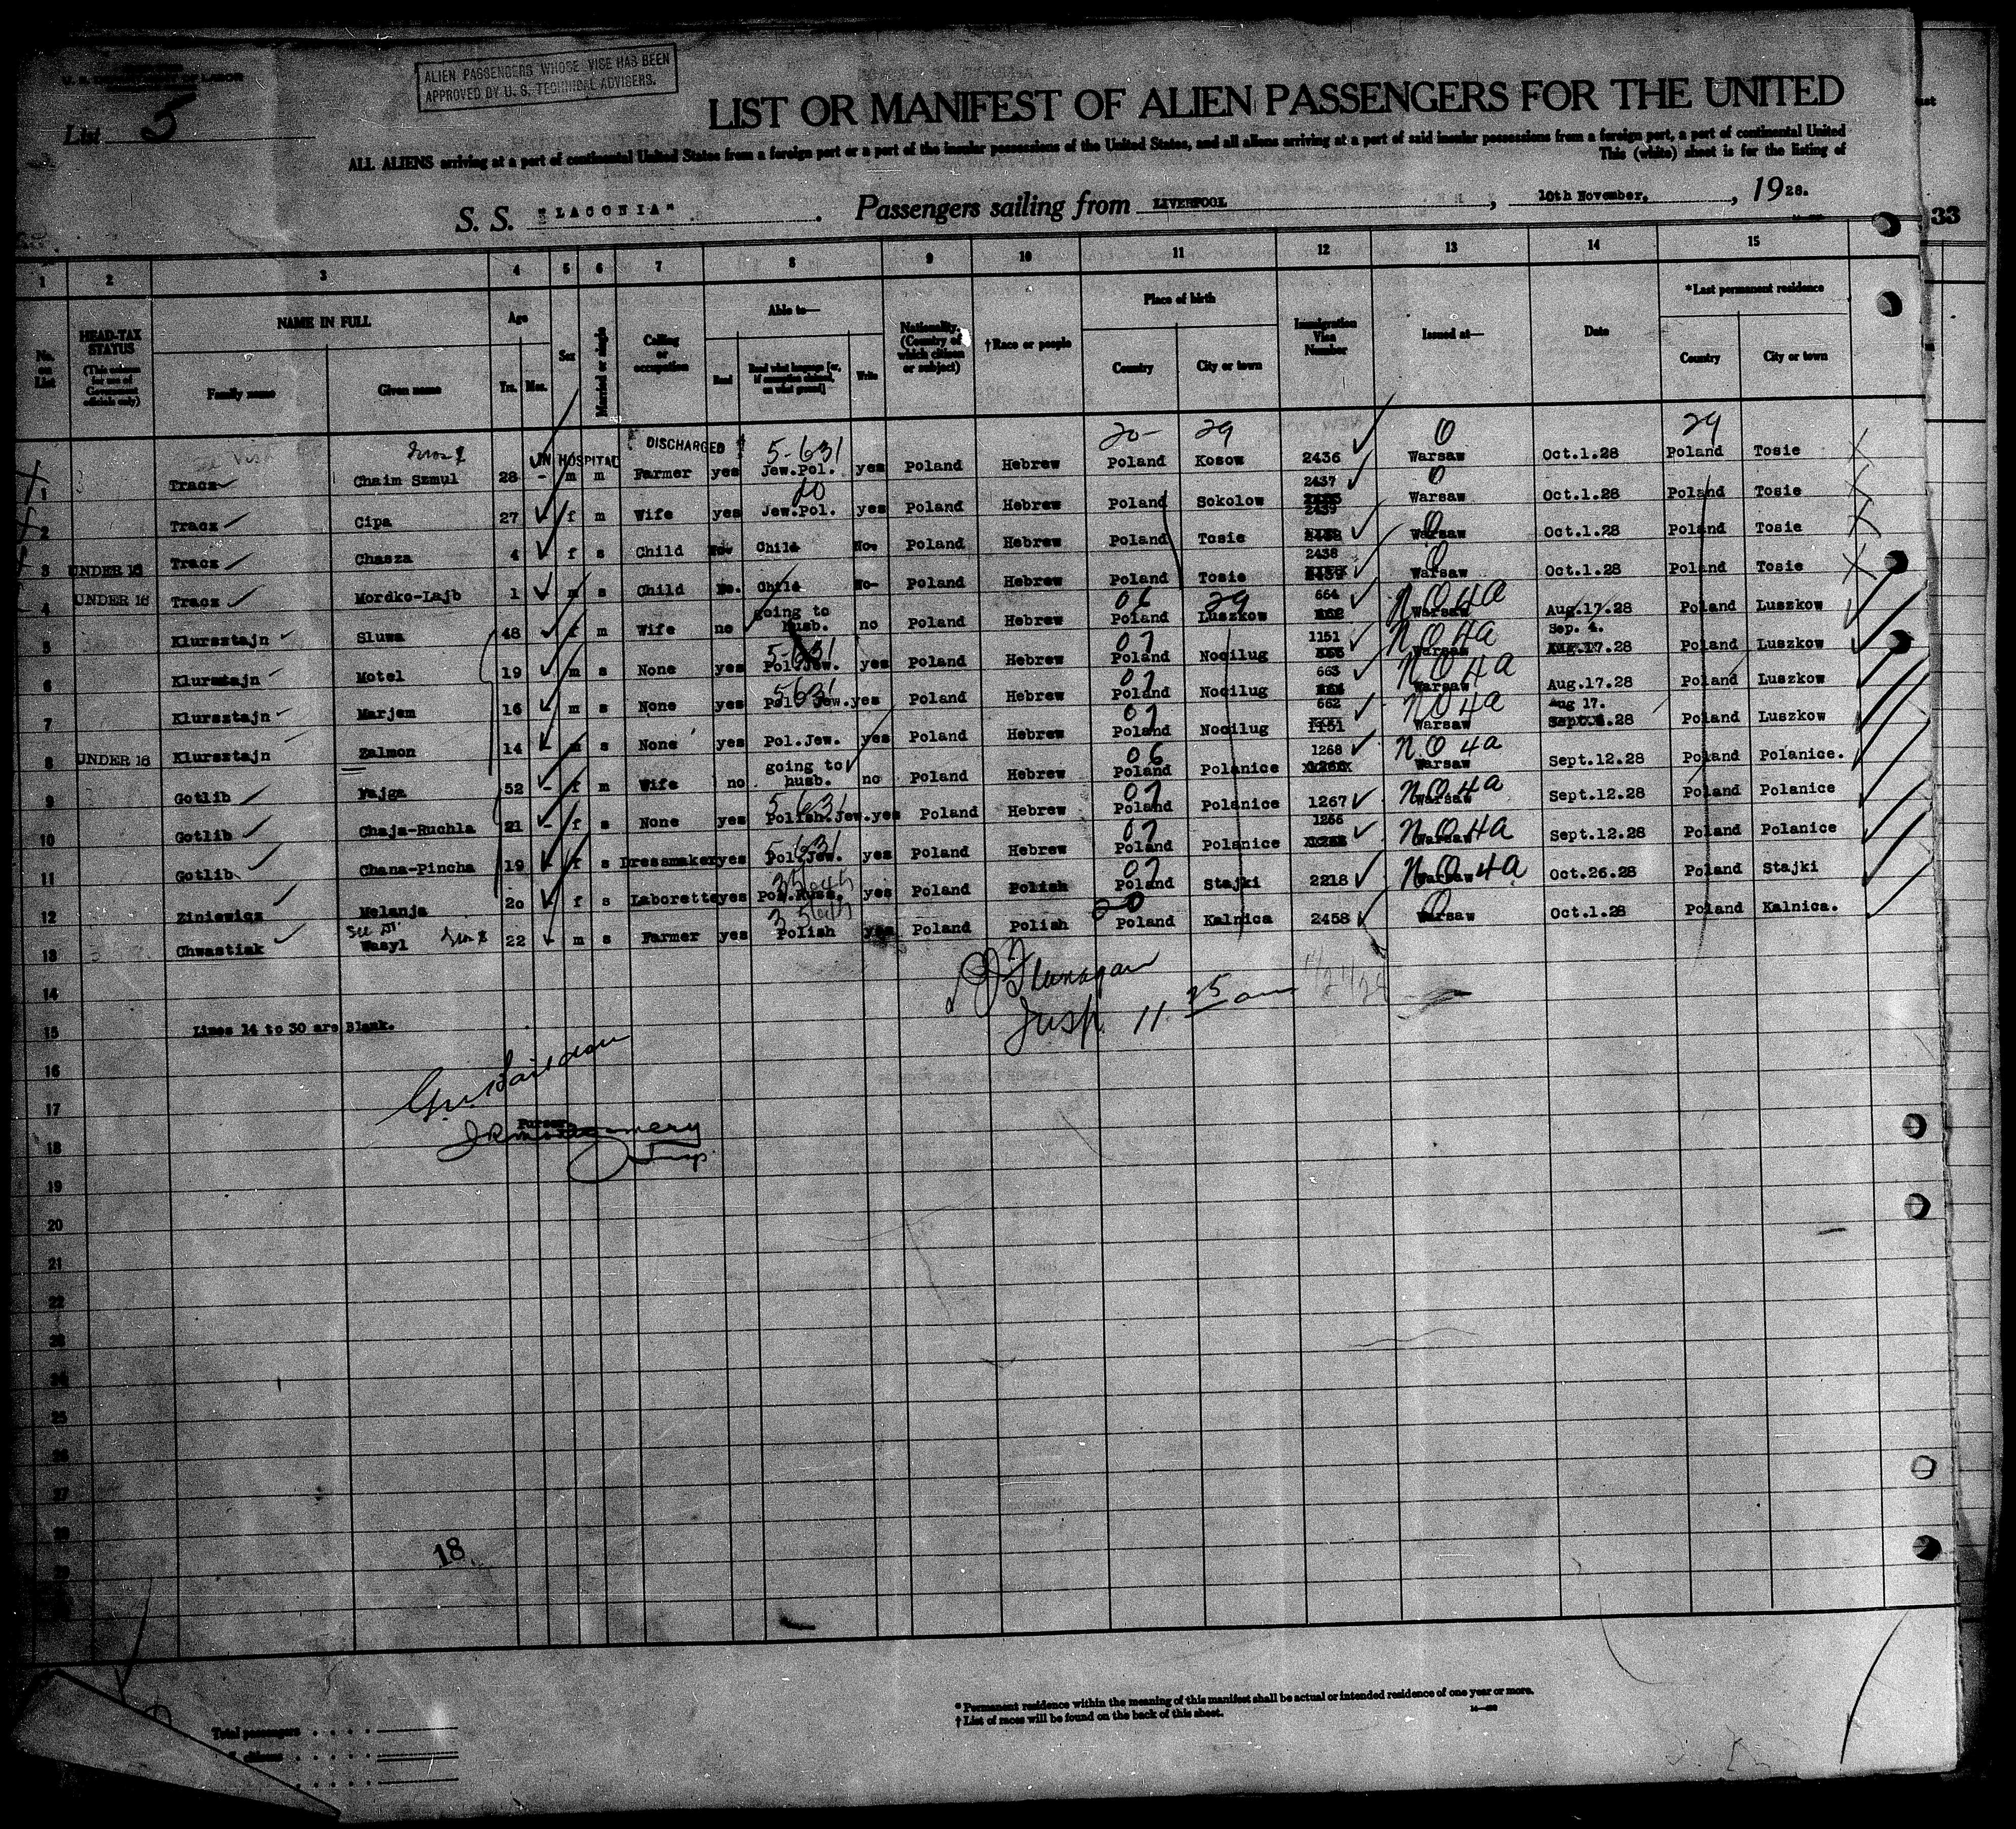 U. S. DEPARTMENT OF LABOR
ALIEN PASSENGERS WHOSE VISE HAS BEEN
APPROVED BY U. S. TECHNICAL ADVISERS.
List 5
LIST OR MANIFEST OF ALIEN PASSENGERS FOR THE UNITED
ALL ALIENS arriving at a port of continental United States from a foreign port or a port of the insular possessions of the United States, and all aliens arriving at a port of said insular possessions from a foreign port, a port of continental United
This (white) sheet is for the listing of
S. S. "LACONIA" . Passengers sailing from LIVERPOOL , 10th November, , 1928.
33
1 2 3 4 5 6 7 8 9 10 11 12 13 14 15
No. on List
HEAD-TAX STATUS (This column for use of Government officials only)
NAME IN FULL
Family name Given name
Age
Yrs. Mos.
Sex
Married or single
Calling or occupation
Able to—
Read Read what language [or, if exemption claimed, on what ground] Write
Nationality. (Country of which citizen or subject)
†Race or people
Place of birth
Country City or town
Immigration Visa Number
Issued at—
Date
*Last permanent residence
Country City or town
DISCHARGED 5-631 20- 29 0 29
IN HOSPITAL
1 Tracz Chaim Szmul 28 - m m Farmer yes Jew.Pol. yes Poland Hebrew Poland Kosow 2436 Warsaw Oct.1.28 Poland Tosie
2 Tracz Cipa 27 - f m Wife yes Jew.Pol. yes Poland Hebrew Poland Sokolow 2437 Warsaw Oct.1.28 Poland Tosie
3 UNDER 16 Tracz Chasza 4 f s Child No. Child No. Poland Hebrew Poland Tosie 2439 Warsaw Oct.1.28 Poland Tosie
4 UNDER 16 Tracz Mordko-Lajb 1 m s Child No. Child No- Poland Hebrew Poland Tosie 2438 Warsaw Oct.1.28 Poland Tosie
5 Klursztajn Sluwa 48 f m Wife no going to husb. no Poland Hebrew Poland Luszkow 664 Warsaw Aug.17.28 Poland Luszkow
6 Klursztajn Motel 19 m s None yes Pol.Jew. yes Poland Hebrew Poland Nocilug 1151 Warsaw Sep. 4. Aug.17.28 Poland Luszkow
7 Klursztajn Marjem 16 m s None yes Pol. Jew. yes Poland Hebrew Poland Nocilug 663 Warsaw Aug.17.28 Poland Luszkow
8 UNDER 16 Klursztajn Zalmon 14 m s None yes Pol.Jew. yes Poland Hebrew Poland Nocilug 662 1151 Warsaw Aug 17. Sept.4.28 Poland Luszkow
9 Gotlib Fajga 52 - f m Wife no going to husb. no Poland Hebrew Poland Polanice 1268 Warsaw Sept.12.28 Poland Polanice.
10 Gotlib Chaja-Ruchla 21 - f s None yes Polish.Jew. yes Poland Hebrew Poland Polanice 1267 Warsaw Sept.12.28 Poland Polanice
11 Gotlib Chana-Pincha 19 - f s Dressmaker yes Pol.Jew. yes Poland Hebrew Poland Polanice 1266 Warsaw Sept.12.28 Poland Polanice
12 Ziniewicz Melanja 20 f s Laborette yes Pol.Russ. yes Poland Polish Poland Stajki 2218 Warsaw Oct.26.28 Poland Stajki
13 Chwastiak Wasyl 22 - m s Farmer yes Polish yes Poland Polish Poland Kalnica 2458 Warsaw Oct.1.28 Poland Kalnica.
14
15 Lines 14 to 30 are Blank.
Flanagan
Insp. 11 25 am
16
17
Purser
JR Montgomery
Insp.
18
19
20
21
22
23
24
25
26
27
28
29
30
18
Total passengers
* Permanent residence within the meaning of this manifest shall be actual or intended residence of one year or more.
† List of races will be found on the back of this sheet.